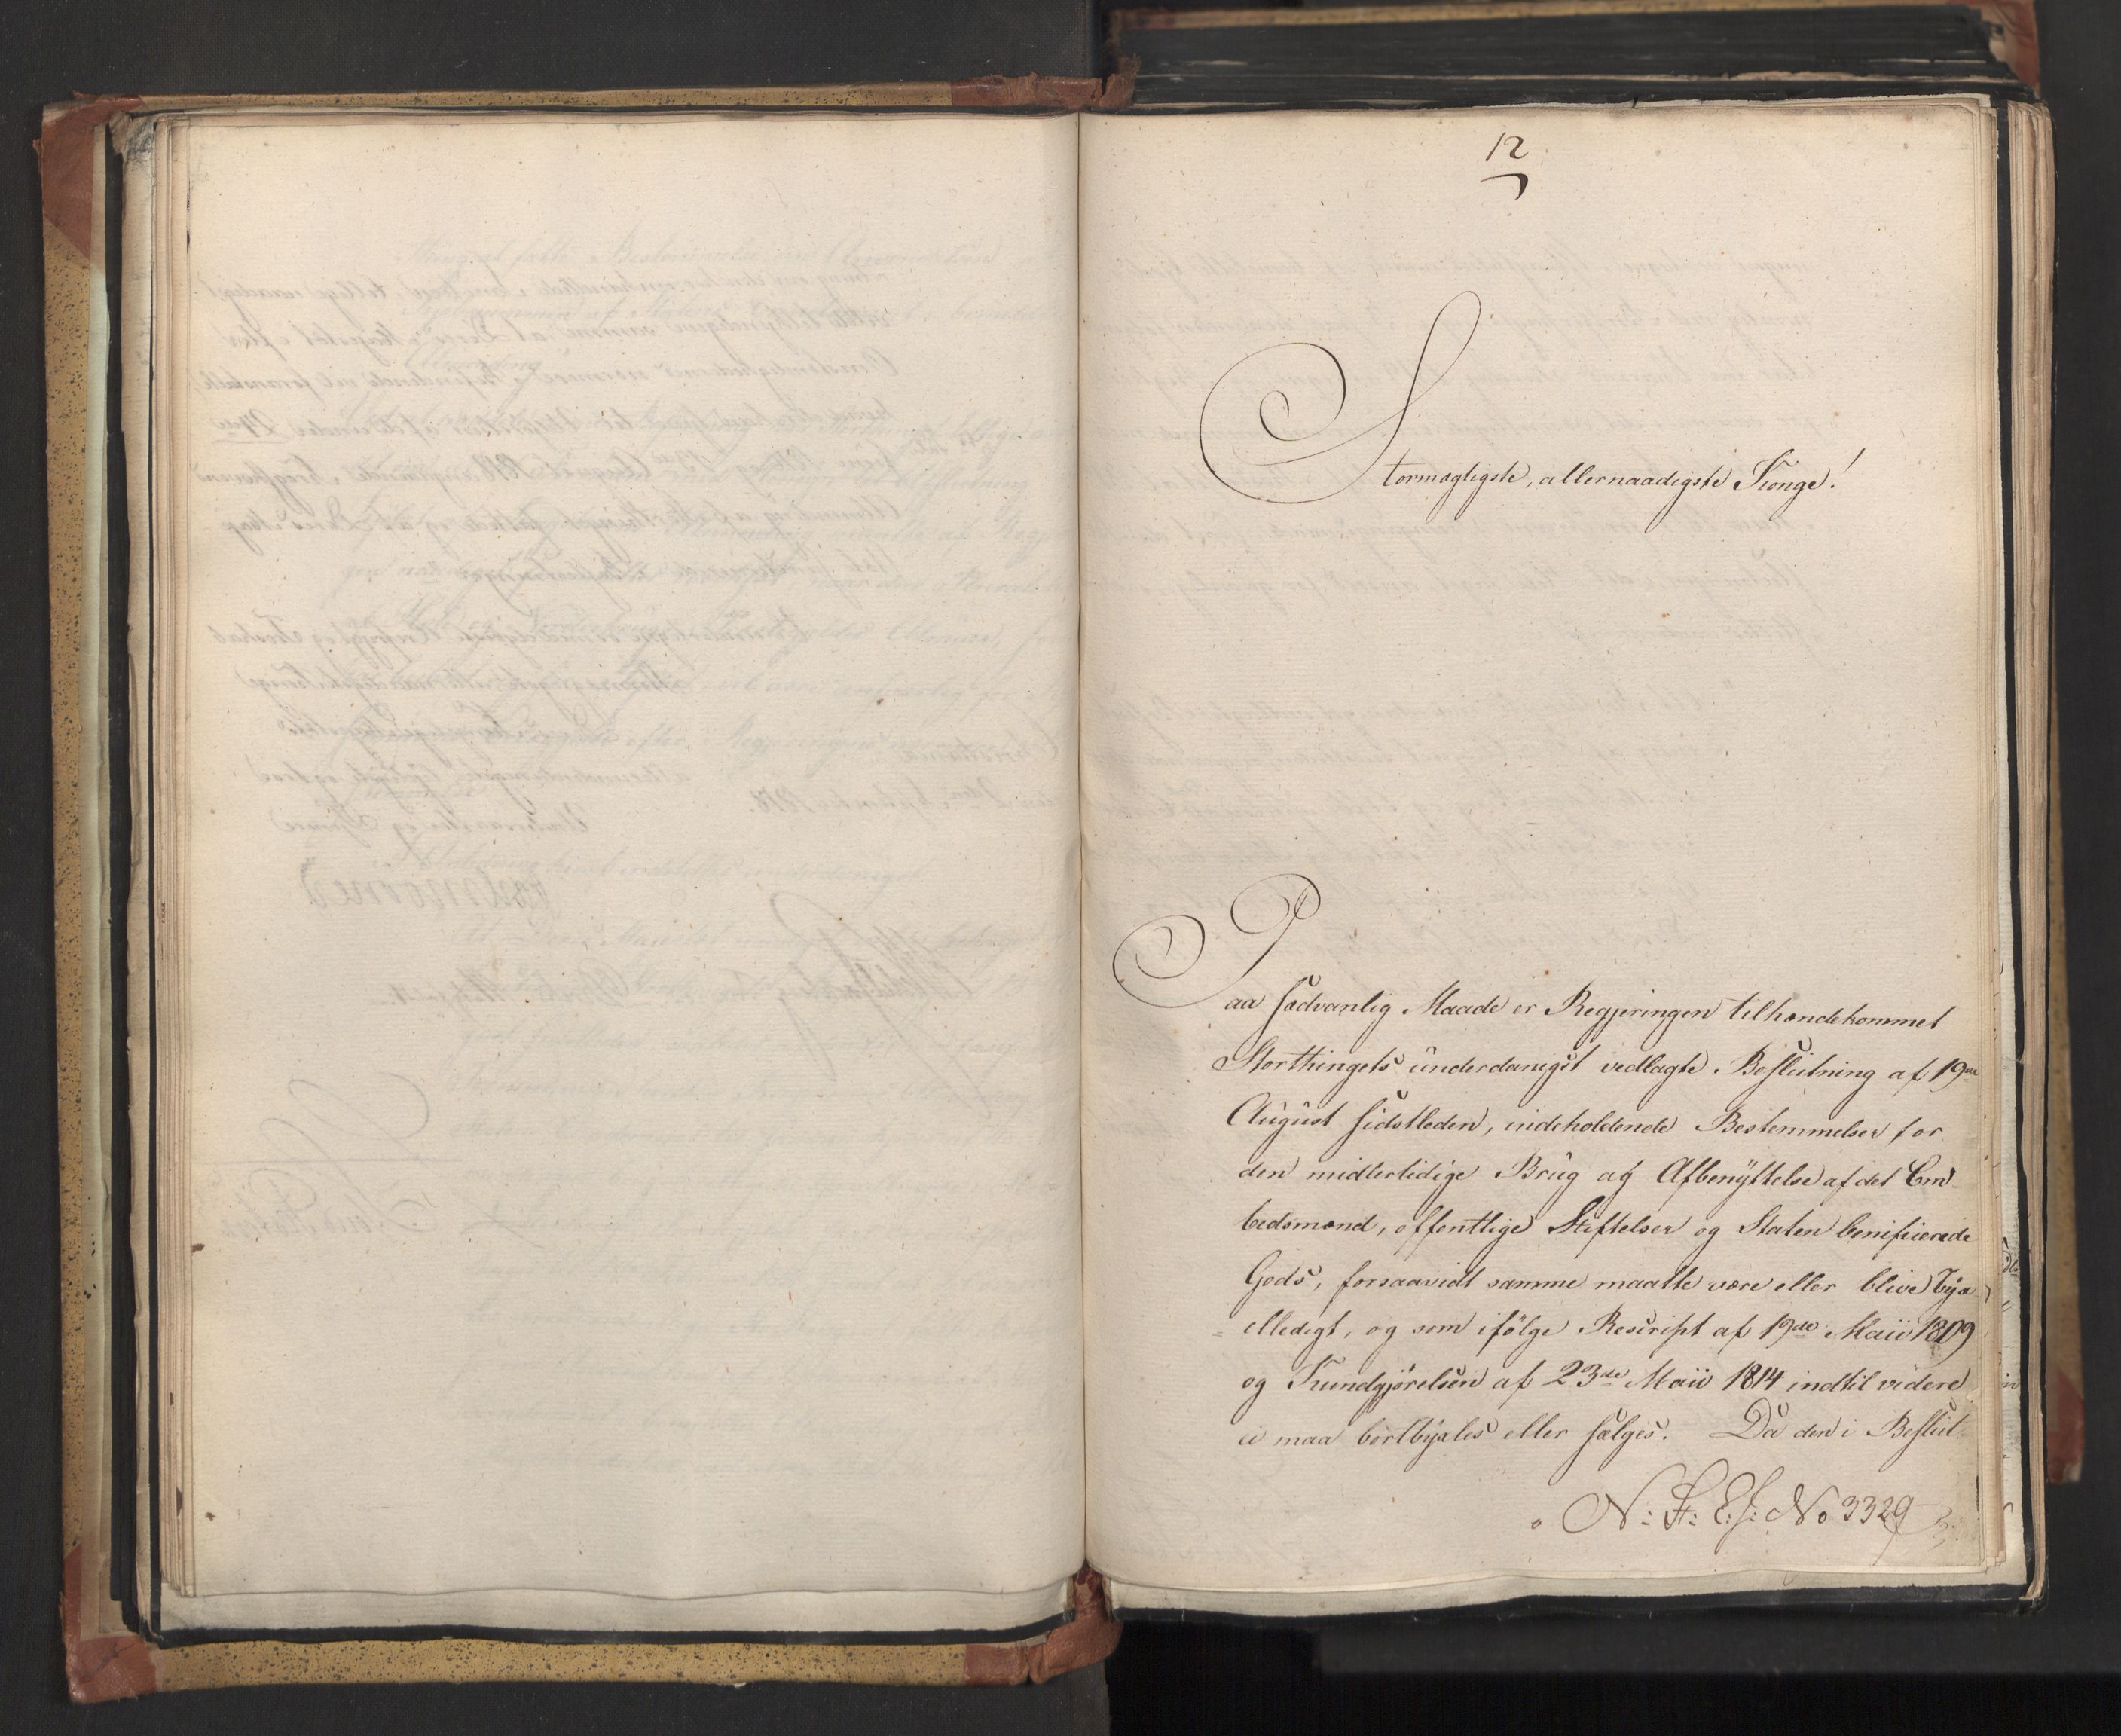 12
Stormægtigste, allernaadigste Konge!
Paa sædvanlig Maade er Regjeringen tilhændekommet
Storthingets underdanigst vedlagte Beslutning af 19de
August sidstleden, indeholdende Bestemmelser for
den midlertidige Brug og Afbenÿttelse af det Em
bedsmænd, offentlige Stiftelser og Staten benificerede
Gods, forsaavidt samme maatte være eller blive bÿx
elledigt, og som ifölge Rescript af 19de Maii 1809
og Kundgjörelsen af 23de Maii 1814 indtil videre
ei maa bortbÿxles eller sælges. Da den i Beslut
N: F: E: J: No 3329